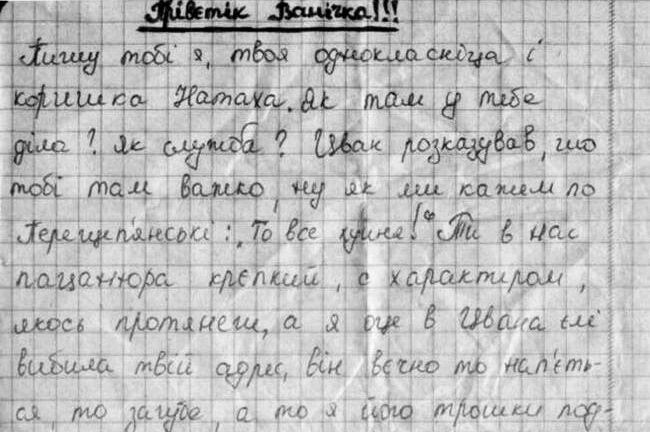 Прівєтік Ванічка!!!
Пишу тобі я, твоя однокласніца і
коришка Натаха. Як там у тебе
діла? Як служба? Иван розказував, шо
тобі там важко, ну як ми кажем по
Перещеп'янські: „То все хуйня!“ Ти в нас
пацанюра крєпкий, с характіром,
якось протянеш, а я оце в Ивана єлє
вибила твій адрес, він вєчно то нап'єть-
ся, то загубе, а то я його трошки под-